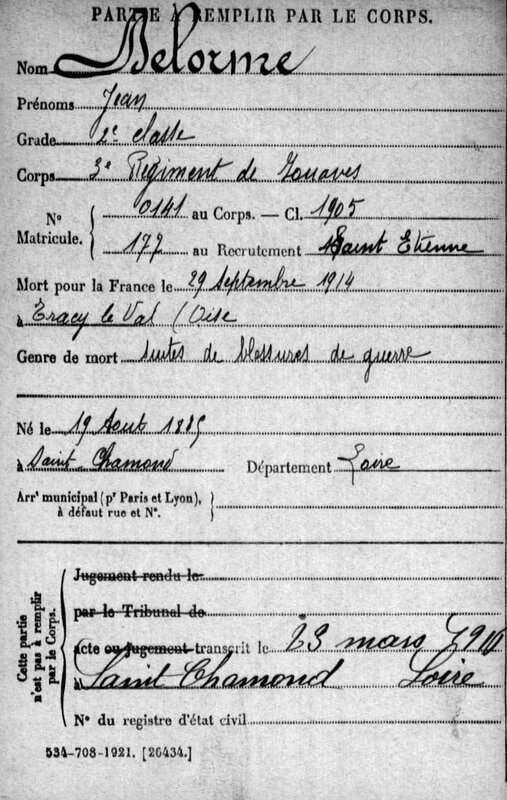 PARTIE À REMPLIR PAR LE CORPS.
Nom Delorme
Prénoms Jean
Grade 2e classe
Corps 3e Régiment de Zouaves
N° Matricule. 0141 au Corps. — Cl. 1905
177 au Recrutement Saint Etienne
Mort pour la France le 29 septembre 1914
à Tracy le Val (Oise
Genre de mort suites de blessures de guerre
Né le 19 Août 1885
à Saint-Chamond Département Loire
Arrt municipal (pr Paris et Lyon), à défaut rue et N°.
Cette partie n'est pas à remplir par le Corps.
Jugement rendu le
par le Tribunal de
acte ou jugement transcrit le 23 mars
à Saint Chamond Loire
N° du registre d'état civil
534-708-1921. [26434.]